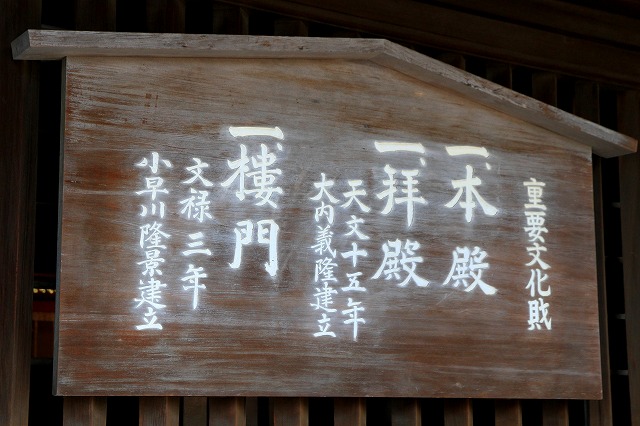 重要文化財
一、本殿
一、拝殿
天文十五年
大内義隆建立
一、楼門
文禄三年
小早川隆景建立